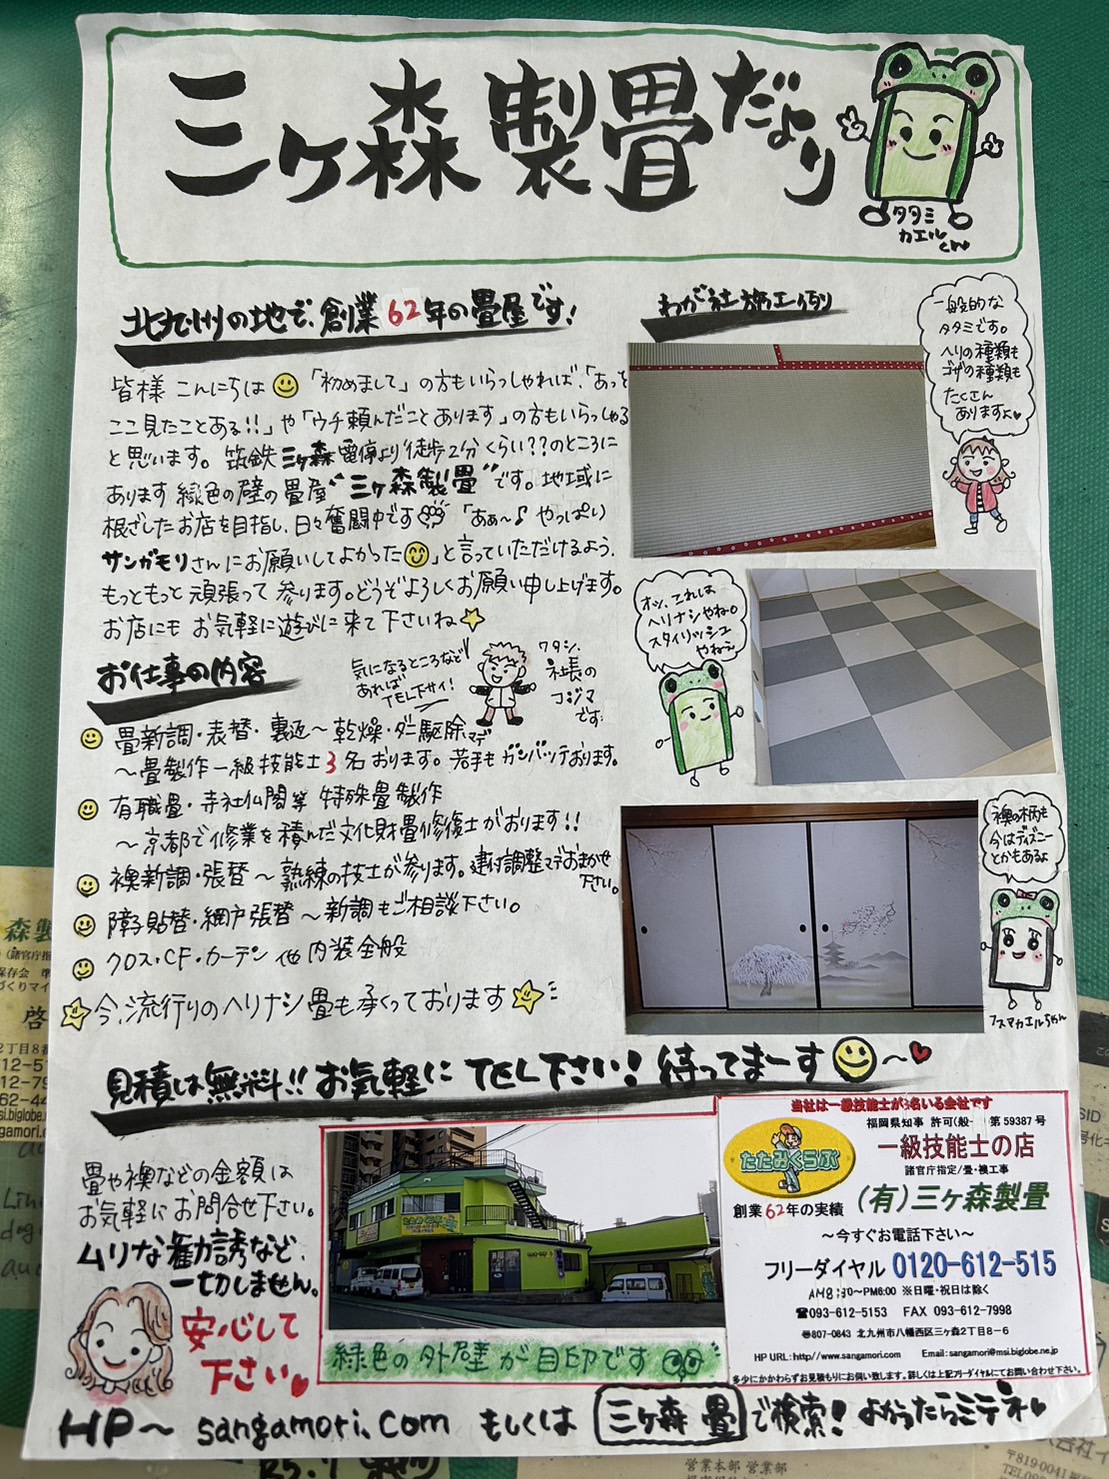 三ヶ森製畳だより
タタミ
カエル
くん
北九州の地で、創業62年の畳屋です!
皆様 こんにちは 「初めまして」の方もいらっしゃれば、「あっ!
ここ見たことある!!」や「ウチ頼んだことあります」の方もいらっしゃる
と思います。筑鉄 三ヶ森 電停より徒歩2分くらい??のところに
あります 緑色の壁の畳屋“三ヶ森製畳”です。地域に
根ざしたお店を目指し、日々奮闘中です 「あぁ〜♪ やっぱり
サンガモリさんにお願いしてよかった」と言っていただけるよう、
もっともっと 頑張って 参ります。どうぞよろしくお願い申し上げます。
お店にも お気軽に遊びに来て下さいね☆
わが社施工例
一般的な
タタミです。
ヘリの種類も
ゴザの種類も
たくさん
ありますよ♥
オッ、これは
ヘリナシやね。
スタイリッシュ
やねぇ
襖の柄も
今はディズニー
とかもあるよ
フスマカエルちゃん
お仕事の内容
気になるところなど
あれば
TEL下サイ!
ワタシ、
社長の
コジマ
です
畳新調・表替・裏返〜乾燥・ダニ駆除マデ
〜畳製作一級技能士3名おります。若手もガンバッテおります。
有職畳・寺社仏閣等 特殊畳製作
〜京都で修業を積んだ文化財畳修復士がおります!!
襖新調・張替〜熟練の技士が参ります。建付調整マデおまかせ
下さい。
障子貼替・網戸張替〜新調もご相談下さい。
クロス・CF・カーテン 他 内装全般
☆今、流行りのヘリナシ畳も承くっております☆
見積は無料!! お気軽に TEL下さい! 待ってまーす〜♥
畳や襖などの金額は
お気軽にお問合せ下さい。
ムリな勧誘など、
一切しません。
安心して
下さい♥
緑色の外壁が目印です
当社は一級技能士が3名いる会社です
福岡県知事 許可(般- )第59387号
たたみくらぶ
一級技能士の店
諸官庁指定/畳・襖工事
創業62年の実績
(有)三ヶ森製畳
〜今すぐお電話下さい〜
フリーダイヤル 0120-612-515
AM8:30〜PM6:00 ※日曜・祝日は除く
☎093-612-5153 FAX 093-612-7998
〠807-0843 北九州市八幡西区三ヶ森2丁目8−6
HP URL:http://www.sangamori.com Email:sangamori@msi.biglobe.ne.jp
多少にかかわらずお見積もりにお伺い致します。詳しくは上記フリーダイヤルにてお問い合わせ下さい。
HP〜 sangamori.com もしくは 三ヶ森 畳 で検索! よかったらミテネ♥
営業本部 営業部
〒819-0041